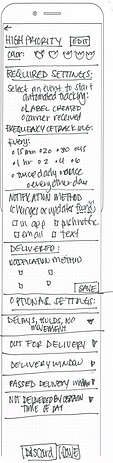 HIGH PRIORITY EDIT
COLOR:
REQUIRED SETTINGS:
Select an event to start
automated tracking:
LABEL CREATED
carrier received
FREQUENCY OF TRACKING:
Every:
15 min 20 30 45
1 hr 2 4 6
twice daily once
every other day
NOTIFICATION METHOD
in app push notific
email text
DELIVERED:
NOTIFICATION METHOD
SAVE
OPTIONAL SETTINGS:
DELAYS, HOLDS, NO
MOVEMENT
OUT FOR DELIVERY
DELIVERY WINDOW
PASSED DELIVERY WINDOW
NOT DELIVERED BY CERTAIN
TIME OF DAY
Discard SAVE